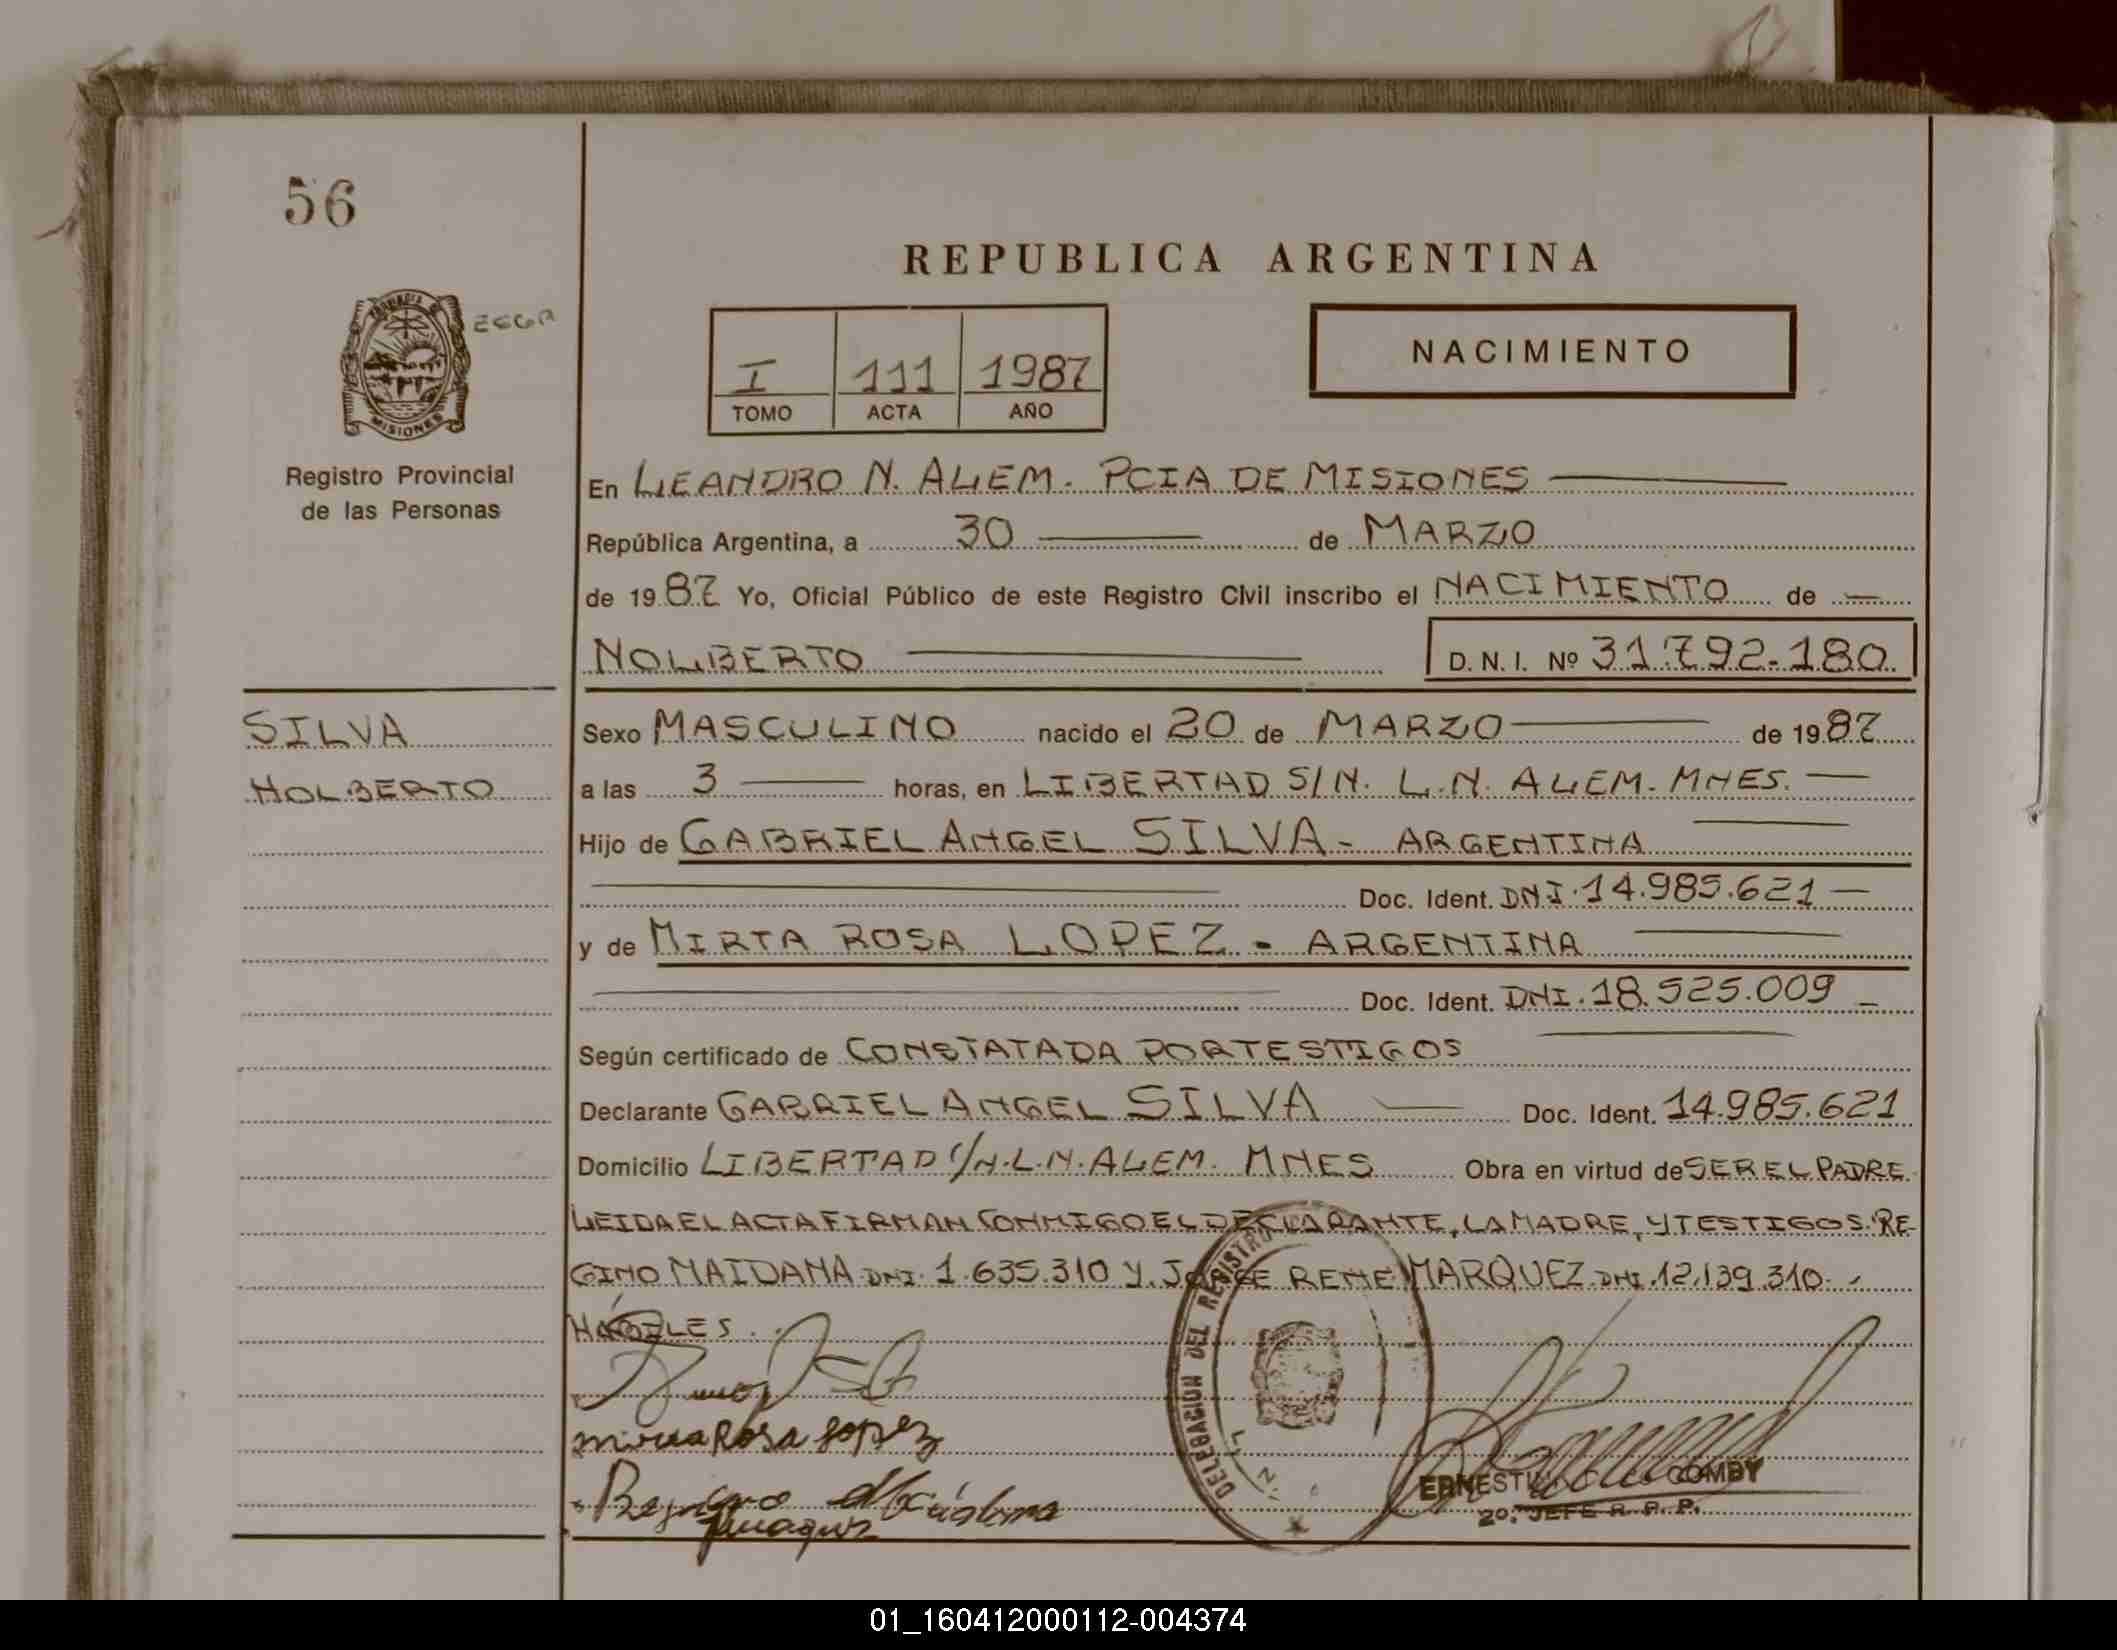 56
REPUBLICA ARGENTINA
MISIONES
I 111 1987
TOMO ACTA AÑO
NACIMIENTO
Registro Provincial
de las Personas
En LEANDRO N. ALEM. PCIA DE MISIONES
República Argentina, a 30 de MARZO
de 1987 Yo, Oficial Público de este Registro Civil inscribo el NACIMIENTO de
NOLBERTO D. N. I. Nº 31.792.180
SILVA
NOLBERTO
Sexo MASCULINO nacido el 20 de MARZO de 1987
a las 3 horas, en LIBERTAD S/N. L.N. ALEM. MNES.
Hijo de GABRIEL ANGEL SILVA - ARGENTINA
Doc. Ident. DNI. 14.985.621
y de MIRTA ROSA LOPEZ - ARGENTINA
Doc. Ident. DNI. 18.525.009
Según certificado de CONSTATADA POR TESTIGOS
Declarante GABRIEL ANGEL SILVA Doc. Ident. 14.985.621
Domicilio LIBERTAD S/N. L.N. ALEM. MNES Obra en virtud de SER EL PADRE.
LEIDA EL ACTA FIRMAN CONMIGO EL DECLARANTE, LA MADRE, Y TESTIGOS. RE-
GINO MAIDANA DNI. 1.635.310 Y JORGE RENE MARQUEZ DNI. 12.139.310.
HÁBILES.
Mirta Rosa Lopez
DELEGACION DEL REGISTRO
COMBY
2º. JEFE R. P. P.
01_160412000112-004374